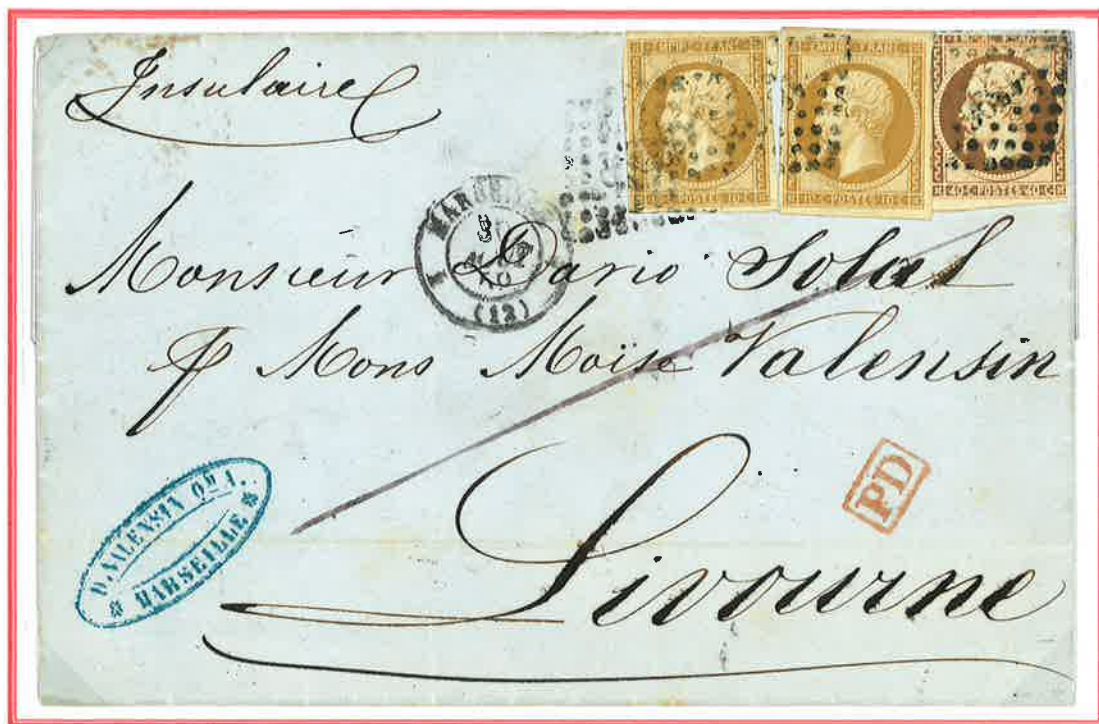 Insulaire
EMPIRE FRANC
10·C·POSTES·10·C
EMPIRE FRANC
10·C·POSTES·10·C
40·C·POSTES·40·C
MARSEILLE
1
(12)
Monsieur Dario Solal
Mons Moïse Valensin
Livourne
PD
D. VALENSIN Qm A.
* MARSEILLE *